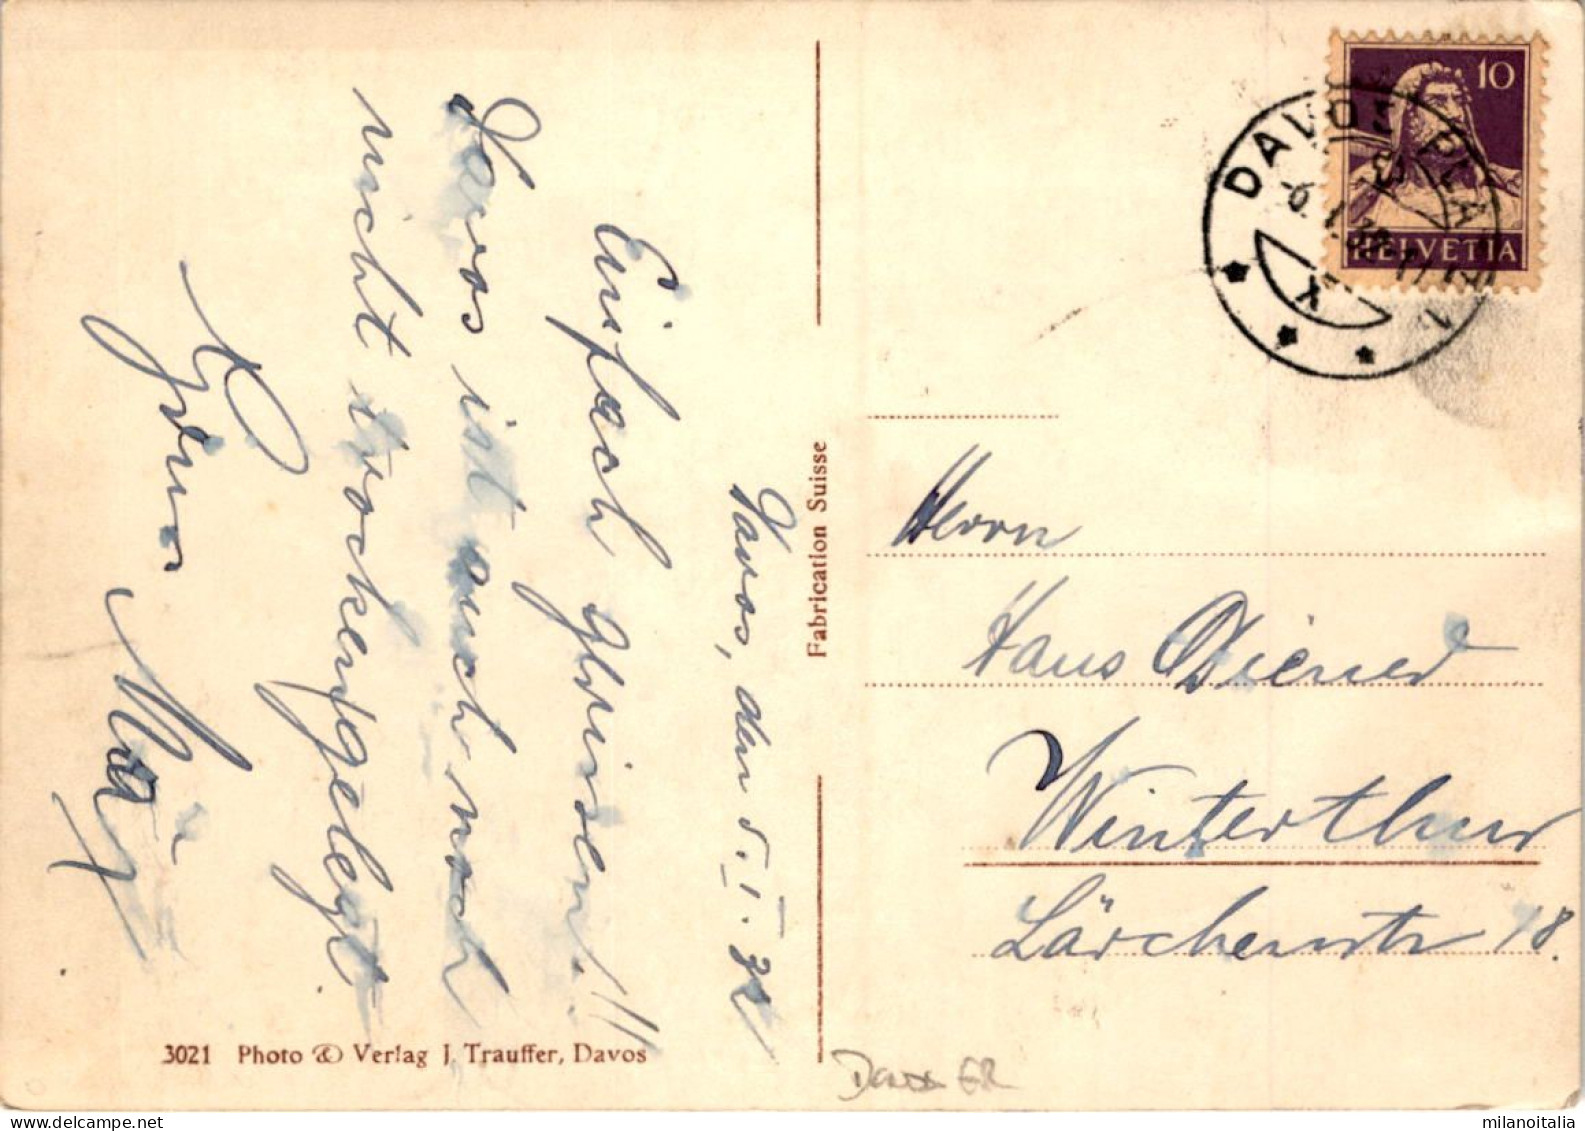 Davos, den 5. I. 32
Einfach Grüsse!!
Davos ist auch noch
nicht trockengelegt
Gruss
10
HELVETIA
DAVOS PLATZ 1
-6.1.32-17
X
Fabrication Suisse
Herrn
Hans
Winterthur
Lärchenstr 18.
3021 Photo & Verlag J. Trauffer, Davos
Davos GR
milanoitalia